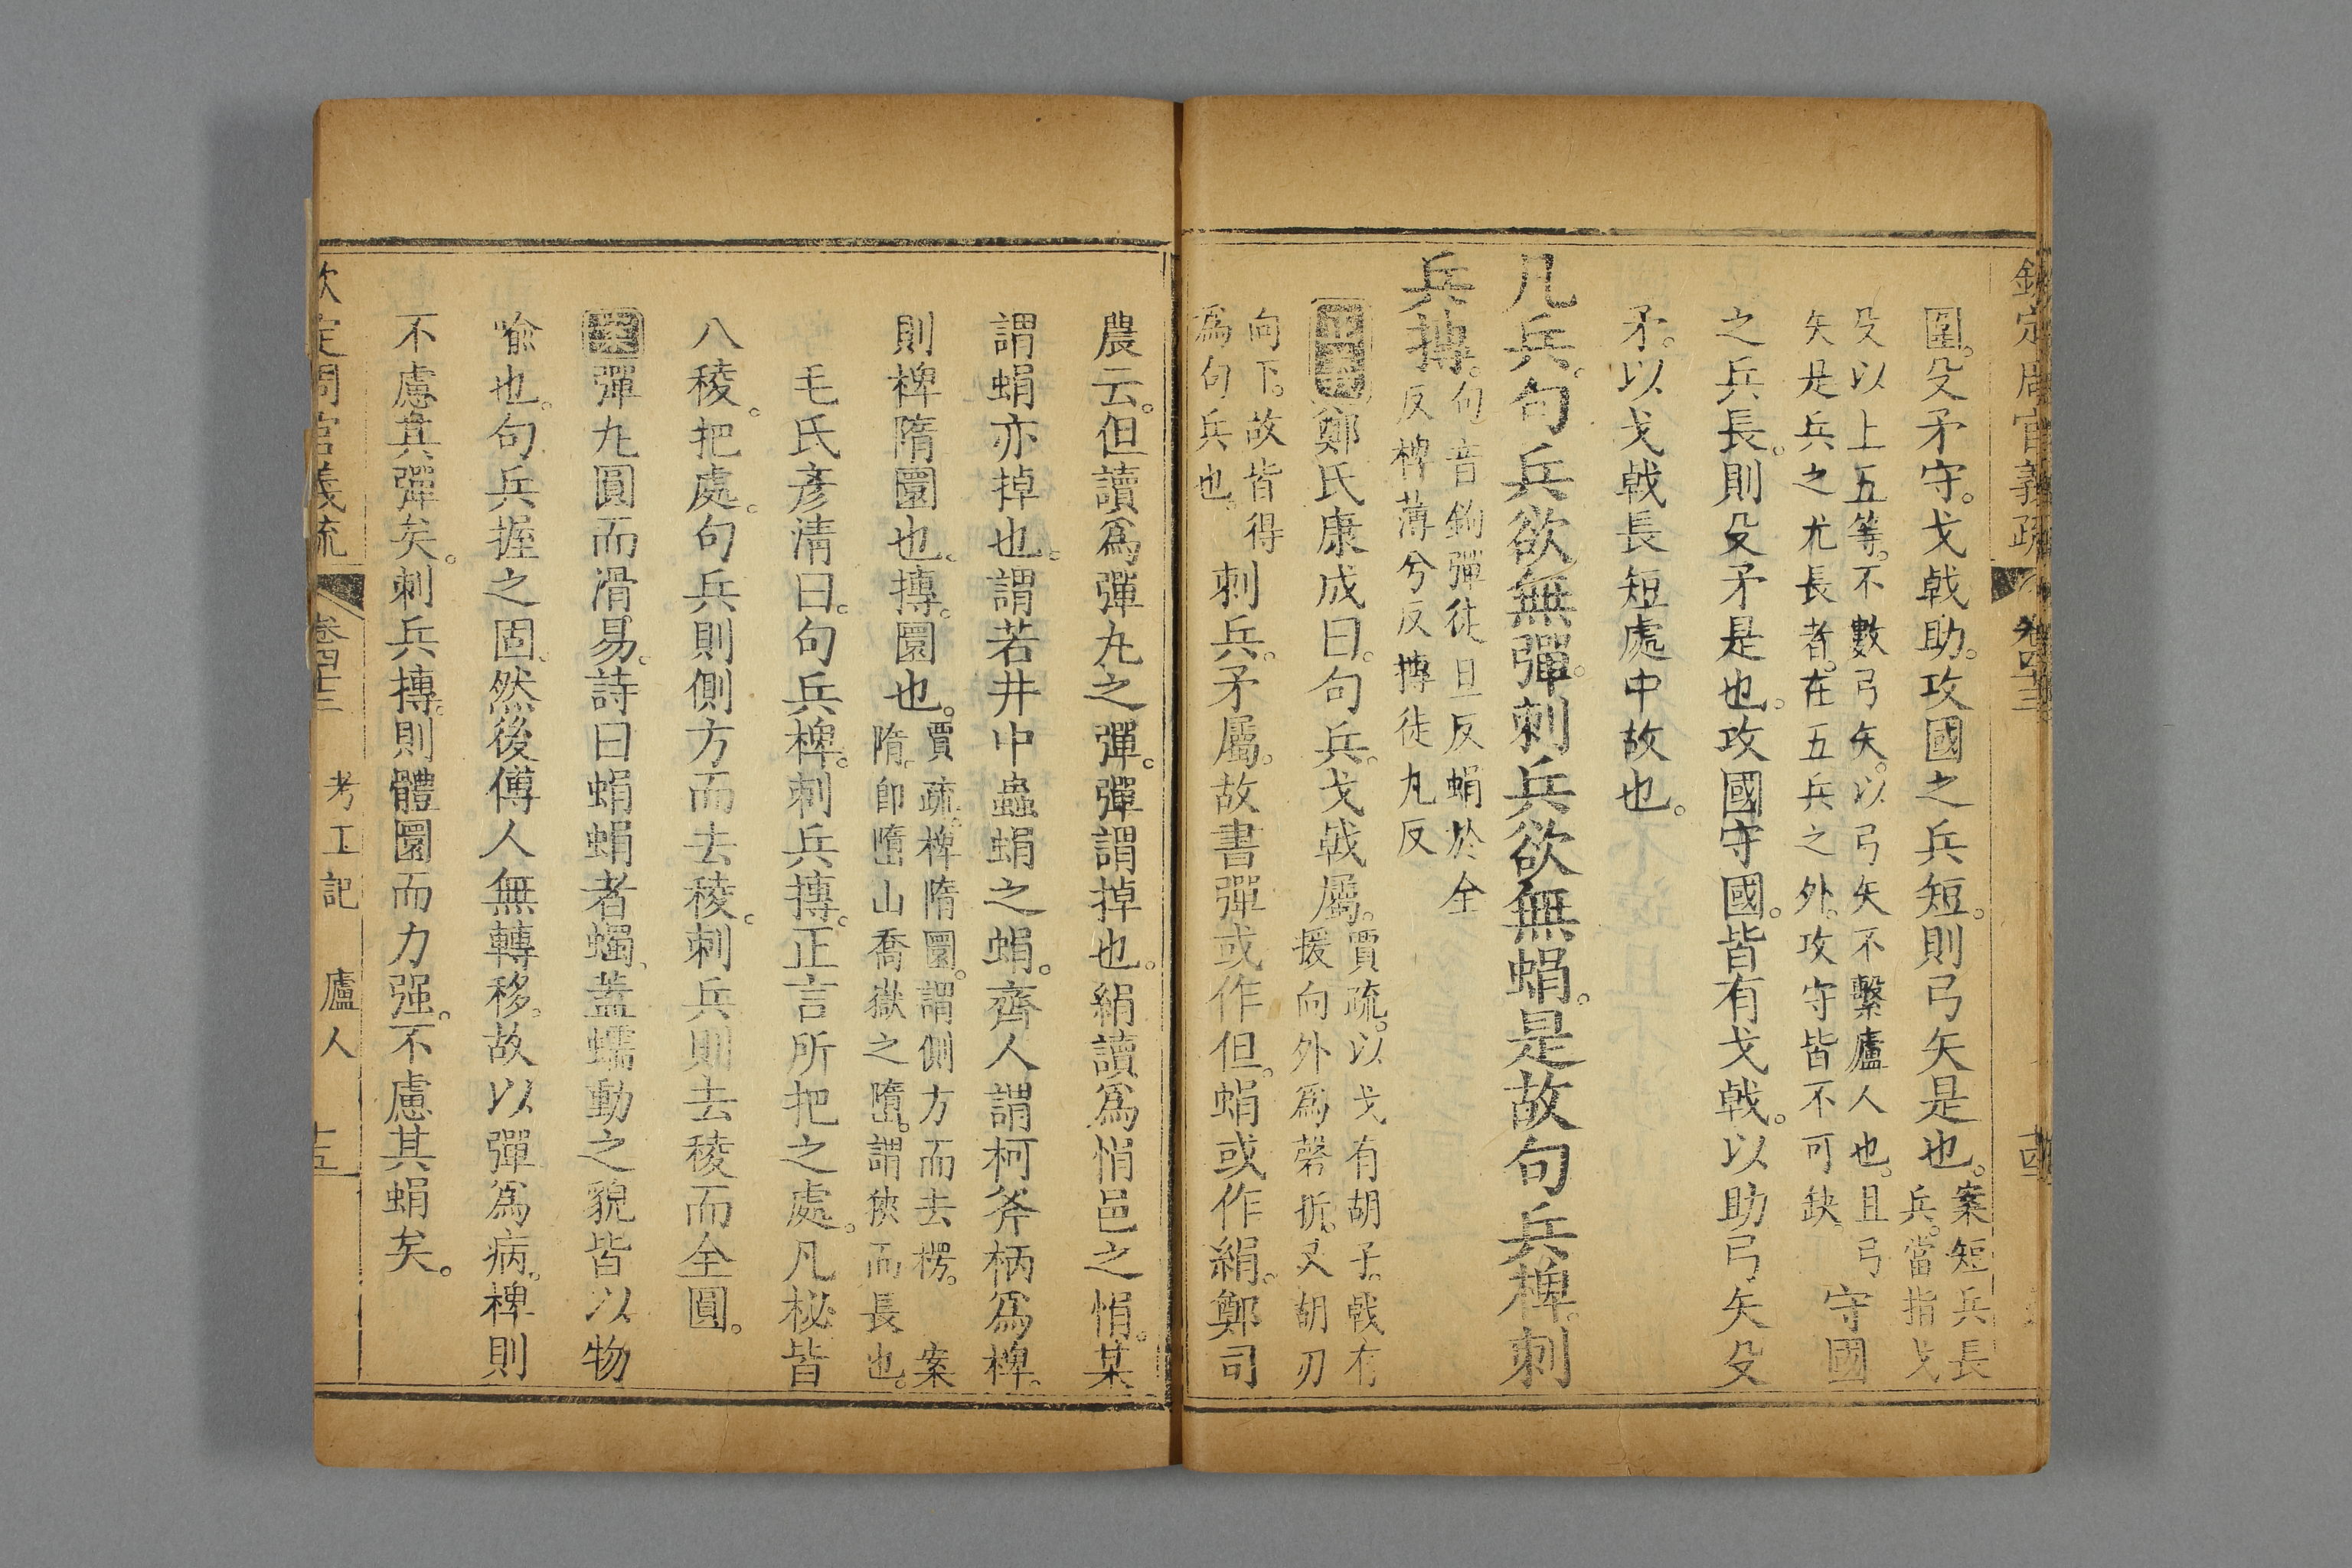 欽定周官義疏 卷四十三
圍。殳矛守。戈戟助。攻國之兵短。則弓矢是也。案短兵長兵。當指戈
殳以上五等。不數弓矢。以弓矢不繫廬人也。且弓矢是兵之尤長者。在五兵之外。攻守皆不可缺。守國
之兵長。則殳矛是也。攻國守國。皆有戈戟。以助弓矢殳
矛。以戈戟長短處中故也。
凡兵。句兵欲無彈。刺兵欲無蜎。是故句兵椑。刺
兵摶。句音鉤彈徒旦反蜎於全反椑薄兮反摶徒丸反
鄭氏康成曰。句兵。戈戟屬。賈疏。以戈有胡子。戟有援向外爲磬折。又胡刃
向下。故皆得爲句兵也。刺兵。矛屬。故書彈或作但。蜎或作絹。鄭司
農云。但讀爲彈丸之彈。彈謂掉也。絹讀爲悁邑之悁。某
謂蜎亦掉也。謂若井中蟲蜎之蜎。齊人謂柯斧柄爲椑。
則椑隋圜也。摶。圜也。賈疏。椑隋圜。謂側方而去楞。 案隋。卽嶞山喬嶽之嶞。謂狹而長也。
毛氏彥淸曰。句兵椑。刺兵摶。正言所把之處。凡柲皆
八稜。把處。句兵則側方而去稜。刺兵則去稜而全圓。
案彈丸圓而滑易。詩曰蜎蜎者蠋。蓋蠕動之貌皆以物
喻也。句兵握之固。然後傅人無轉移。故以彈爲病。椑則
不慮其彈矣。刺兵摶。則體圜而力强。不慮其蜎矣。
欽定周官義疏 卷四十三 考工記 廬人 十五